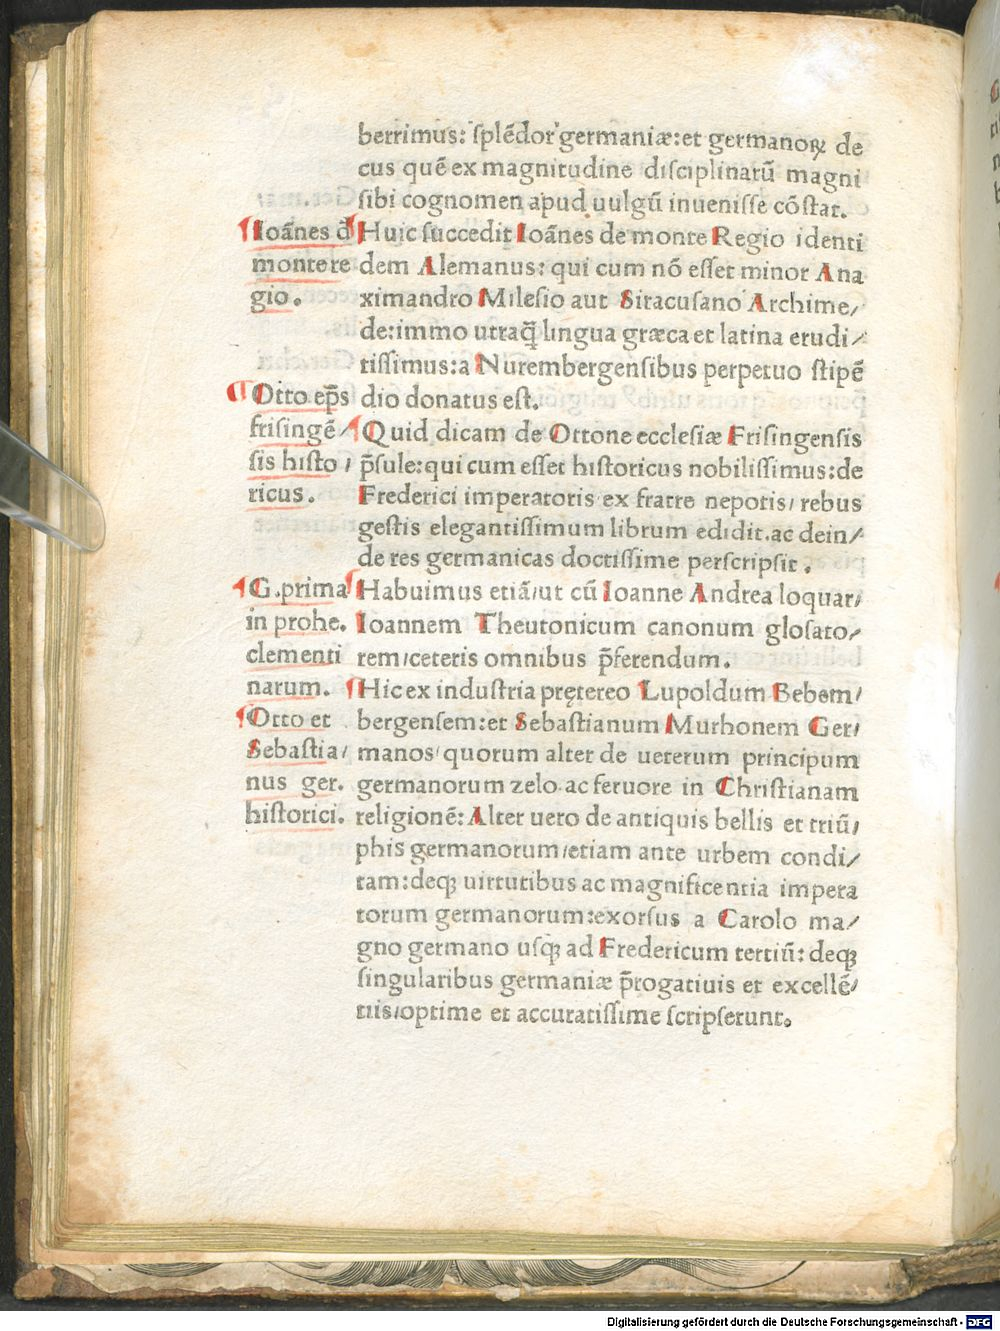 berrimus: splēdor germaniæ: et germanoꝝ de
cus quē ex magnitudine disciplinarū magni
sibi cognomen apud uulgū inuenisse cōstat.
¶Huic succedit Ioānes de monte Regio identi
dem Alemanus: qui cum nō esset minor Ana
ximandro Milesio aut Siracusano Archime/
de: immo utraq̄ lingua græca et latina erudi/
tissimus: a Nurembergensibus perpetuo stipē
dio donatus est.
¶Quid dicam de Ottone ecclesiæ Frisingensis
p̄sule: qui cum esset historicus nobilissimus: de
Frederici imperatoris ex fratre nepotis/ rebus
gestis elegantissimum librum edidit. ac dein/
de res germanicas doctissime perscripsit.
¶Habuimus etiā/ut cū Ioanne Andrea loquar/
Ioannem Theutonicum canonum glosato/
rem/ceteris omnibus p̄ferendum.
¶Hic ex industria prętereo Lupoldum Bebem/
bergensem: et Sebastianum Murhonem Ger/
manos/quorum alter de ueterum principum
germanorum zelo ac feruore in Christianam
religionē: Alter uero de antiquis bellis et triū/
phis germanorum/etiam ante urbem condi/
tam: deqꝫ uirtutibus ac magnificentia impera
torum germanorum: exorsus a Carolo ma/
gno germano usqꝫ ad Fredericum tertiū: deqꝫ
singularibus germaniæ p̄rogatiuis et excellē/
tiis/optime et accuratissime scripserunt.
¶Ioānes đ
monte re
gio.
¶Otto ep̄s
frisingē/
sis histo/
ricus.
¶G.prima
in prohe.
clementi
narum.
¶Otto et
Sebastia/
nus ger.
historici.
Digitalisierung gefördert durch die Deutsche Forschungsgemeinschaft - DFG